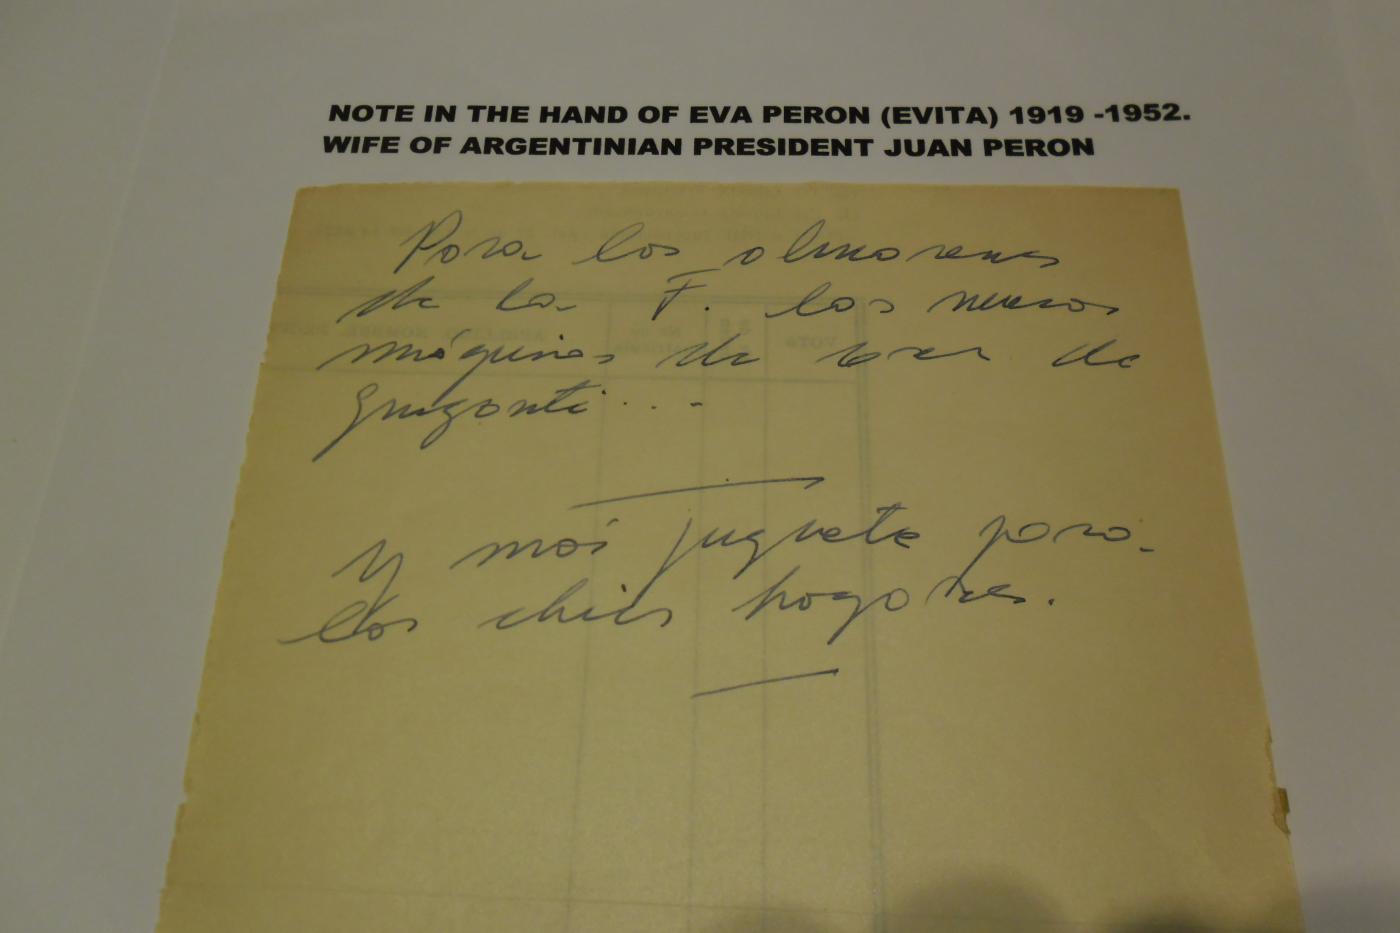 NOTE IN THE HAND OF EVA PERON (EVITA) 1919 -1952.
WIFE OF ARGENTINIAN PRESIDENT JUAN PERON
Para los almacenes
de la F. las nuevas
máquinas de coser de
...
Y más juguete para
los chicos hogares.